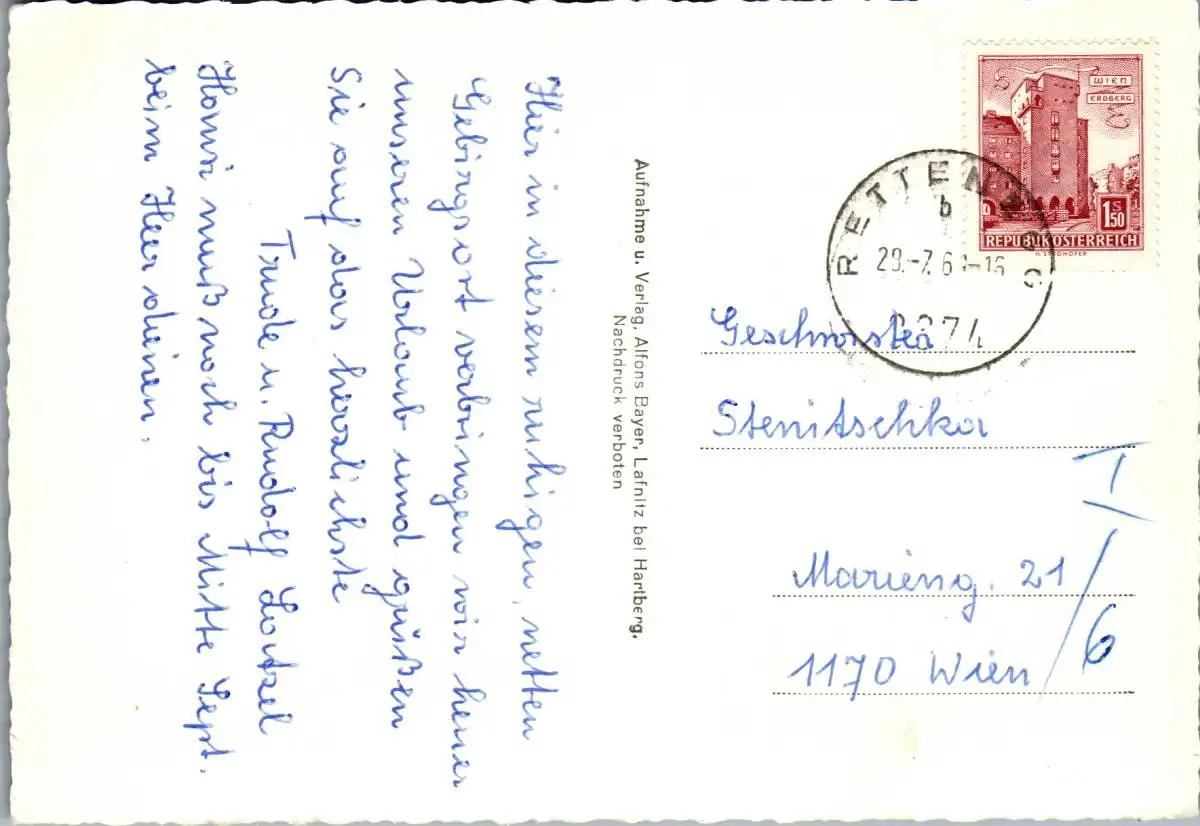 Hier in diesem ruhigen, netten
Gebirgsort verbringen wir heuer
unseren Urlaub und grüßen
Sie auf das herzlichste
Trude u. Rudolf
Hansi muß noch bis Mitte Sept.
beim Heer dienen.
Aufnahme u. Verlag, Alfons Bayer, Lafnitz bei Hartberg.
Nachdruck verboten
WIEN
ERDBERG
S
1.50
REPUBLIK ÖSTERREICH
RETTEN
b
Stenitschka
I
Marieng. 21/6
1170 Wien